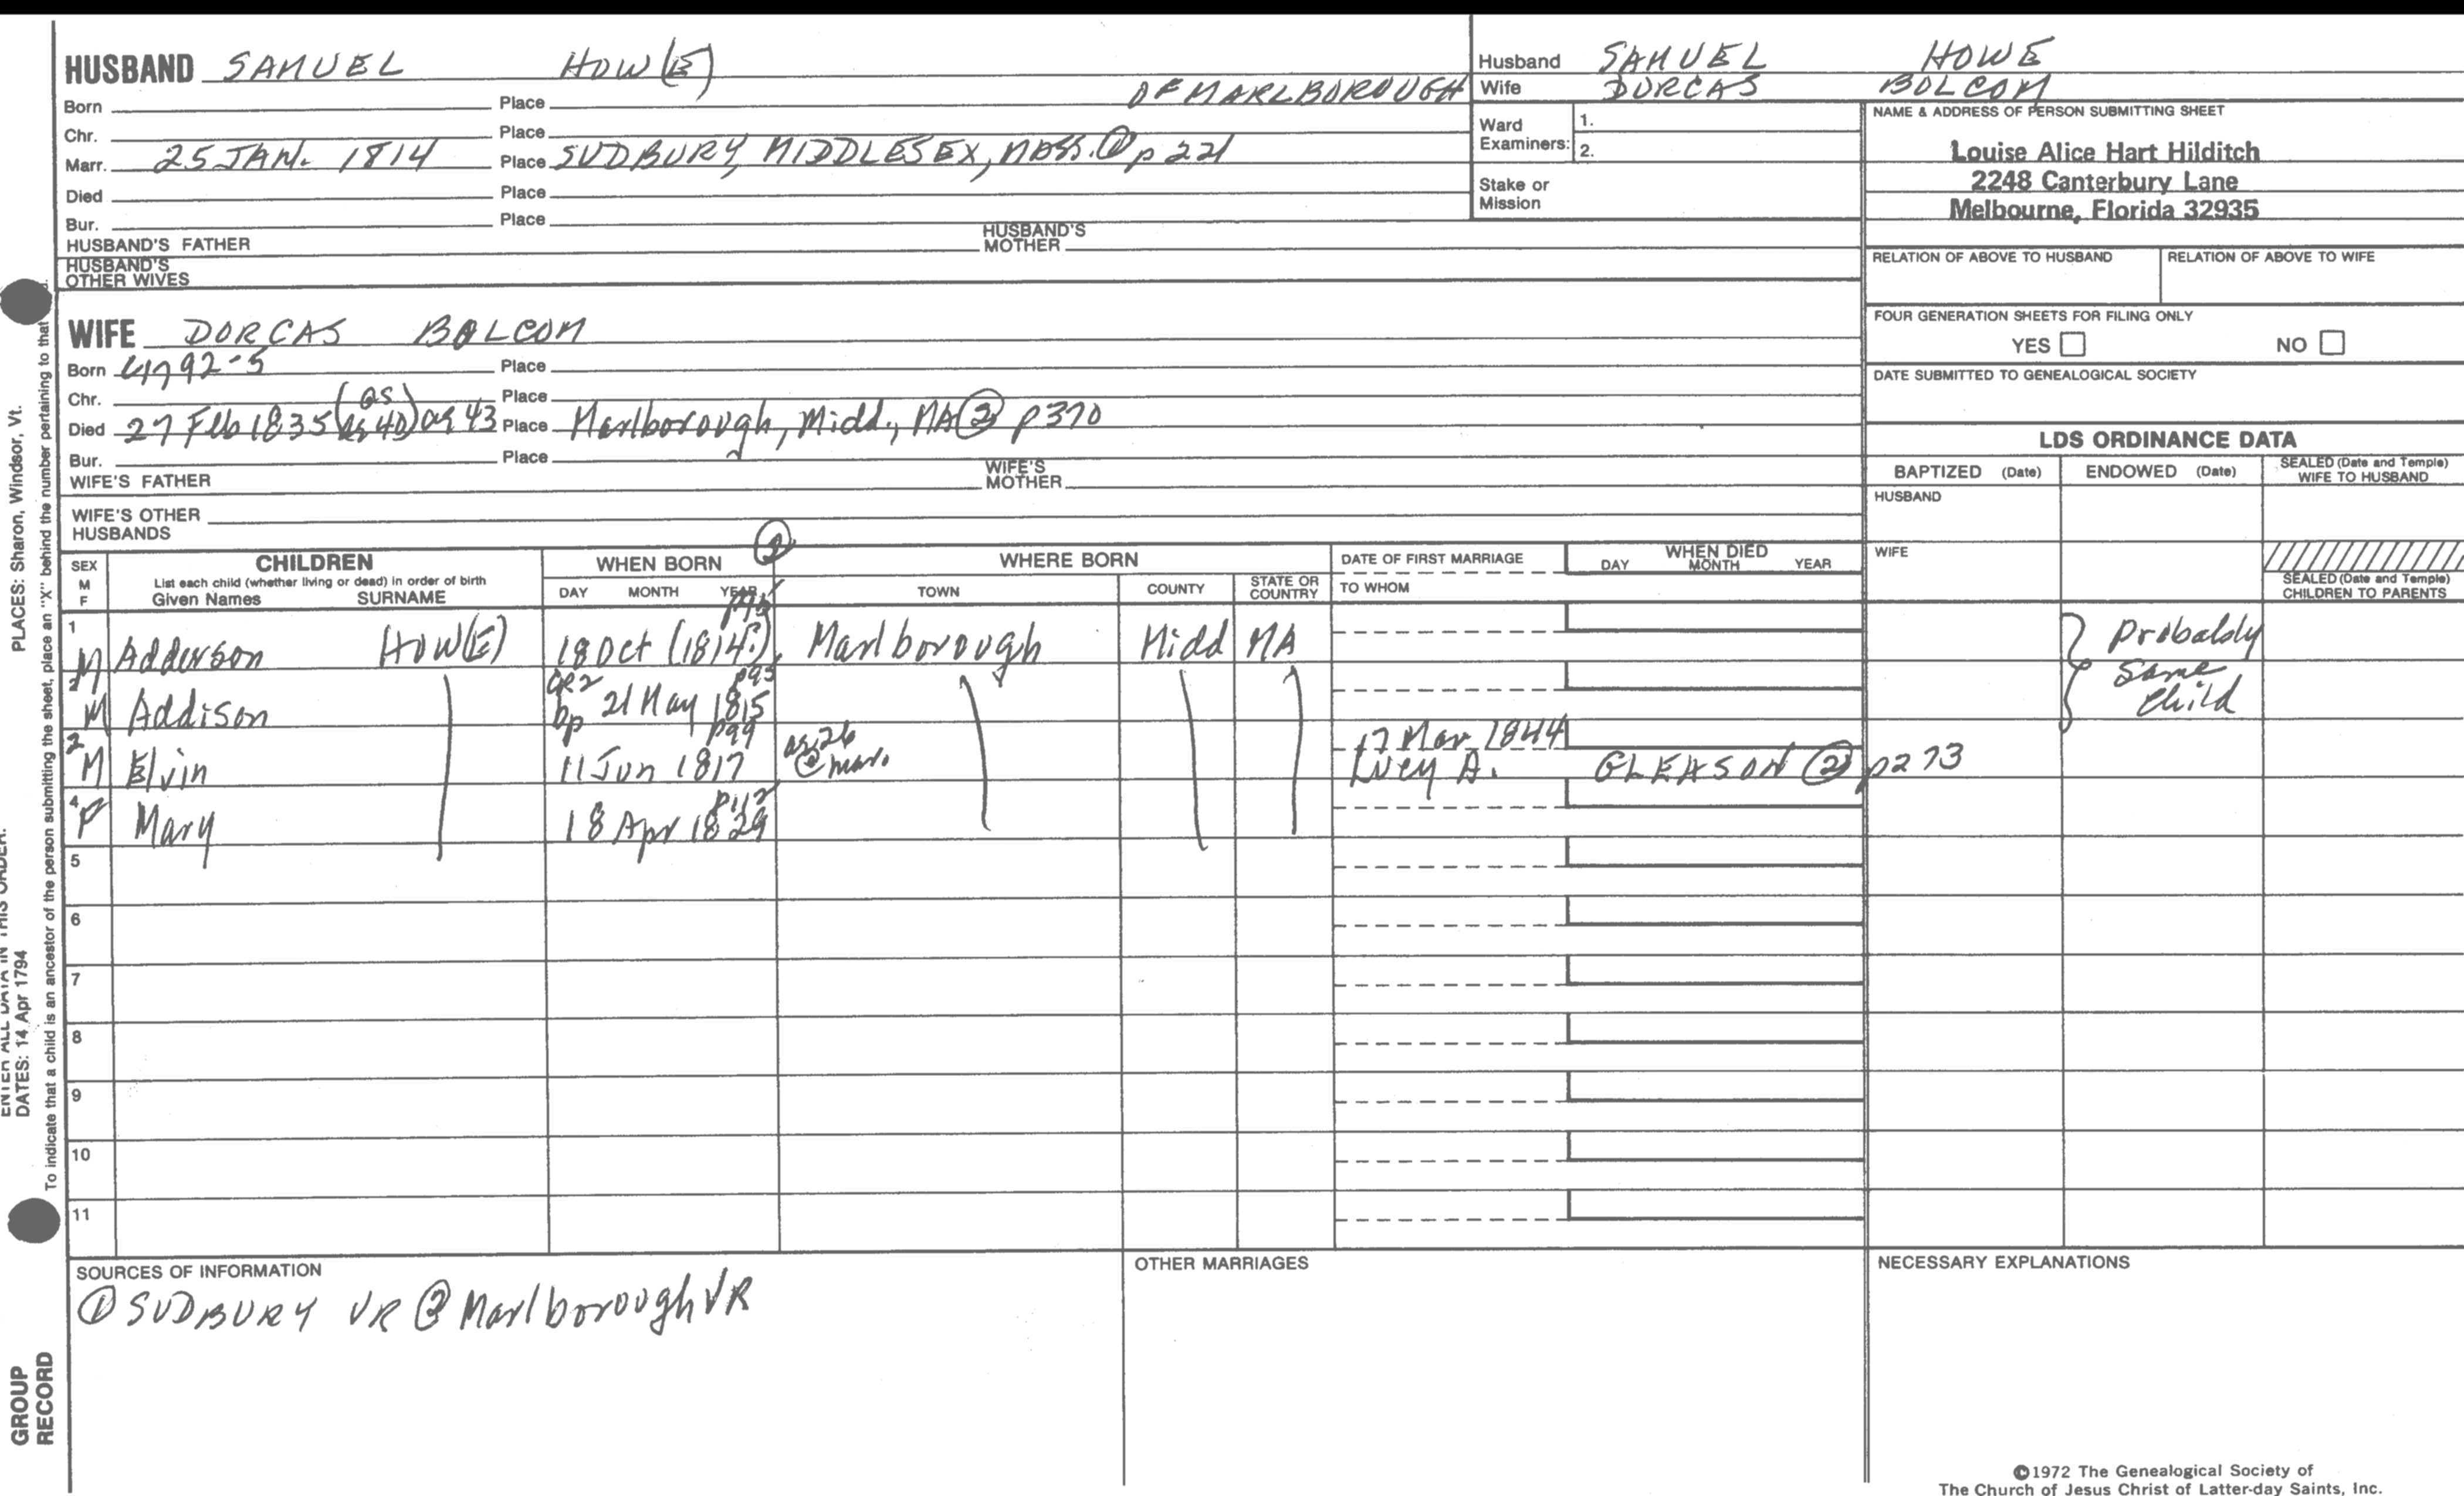 HUSBAND SAMUEL HOW(E)
OF MARLBOROUGH
Born Place
Chr. Place
Marr. 25 JAN. 1814 Place SUDBURY, MIDDLESEX, MASS. ① p 221
Died Place
Bur. Place
HUSBAND'S FATHER HUSBAND'S MOTHER
HUSBAND'S OTHER WIVES
Husband SAMUEL HOWE
Wife DORCAS BOLCOM
Ward Examiners: 1.
2.
Stake or Mission
NAME & ADDRESS OF PERSON SUBMITTING SHEET
Louise Alice Hart Hilditch
2248 Canterbury Lane
Melbourne, Florida 32935
RELATION OF ABOVE TO HUSBAND RELATION OF ABOVE TO WIFE
FOUR GENERATION SHEETS FOR FILING ONLY
YES NO
DATE SUBMITTED TO GENEALOGICAL SOCIETY
WIFE DORCAS BALCOM
Born 1792-5 Place
Chr. Place
(GS)
Died 27 Feb 1835 (ag 40) ag 43 Place Marlborough, Midd., MA ② p370
Bur. Place
WIFE'S FATHER WIFE'S MOTHER
WIFE'S OTHER HUSBANDS
LDS ORDINANCE DATA
BAPTIZED (Date) ENDOWED (Date) SEALED (Date and Temple) WIFE TO HUSBAND
HUSBAND
WIFE
SEALED (Date and Temple) CHILDREN TO PARENTS
②
SEX M F CHILDREN WHEN BORN WHERE BORN DATE OF FIRST MARRIAGE WHEN DIED
List each child (whether living or dead) in order of birth
Given Names SURNAME DAY MONTH YEAR TOWN COUNTY STATE OR COUNTRY TO WHOM DAY MONTH YEAR
1 M Adderson HOW(E) 18 Oct (1814?) Marlborough Midd MA
Probably same child
GR2 p95
M Addison bp 21 May 1815
p99
M Elvin 11 Jun 1817 ag 26 @ mar. 17 Mar 1844
Lucy A. GLEASON ② p273
p112
4 F Mary 18 Apr 1829
5
6
7
8
9
10
11
SOURCES OF INFORMATION
① SUDBURY VR ② Marlborough VR
OTHER MARRIAGES
NECESSARY EXPLANATIONS
©1972 The Genealogical Society of
The Church of Jesus Christ of Latter-day Saints, Inc.
PLACES: Sharon, Windsor, Vt.
ENTER ALL DATA IN THIS ORDER:
DATES: 14 Apr 1794
To indicate that a child is an ancestor of the person submitting the sheet, place an "X" behind the number pertaining to that
GROUP
RECORD